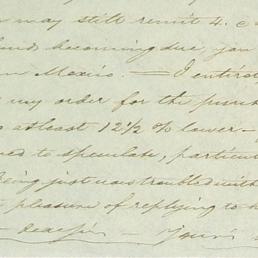 may still remit 4.
becoming due, you
Mexico. — I entirely
my order for the
atleast 12½ % lower —
to speculate, particu
being just now troubled with
pleasure of replying to
— Dear Sir — Yours